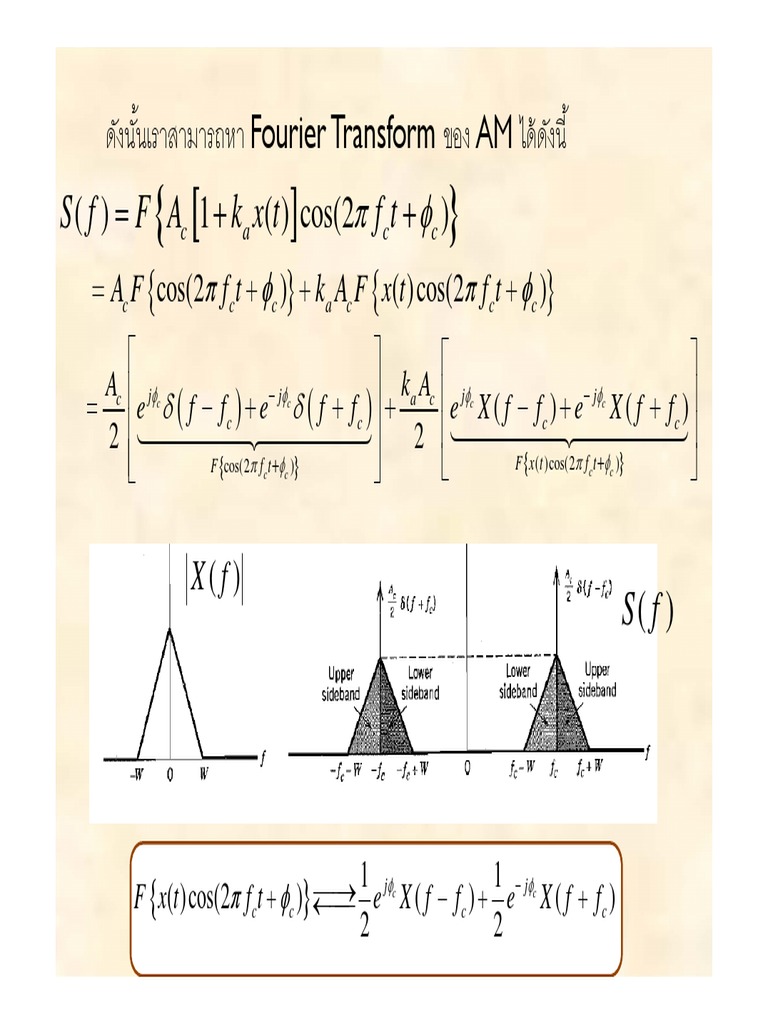 ดังนั้นเราสามารถหา Fourier Transform ของ AM ได้ดังนี้
S(f) = F{A_c[1 + k_a x(t)]cos(2π f_c t + ϕ_c)}
= A_c F{cos(2π f_c t + ϕ_c)} + k_a A_c F{x(t)cos(2π f_c t + ϕ_c)}
= A_c/2 [e^{jϕ_c} δ(f − f_c) + e^{−jϕ_c} δ(f + f_c)] + k_a A_c/2 [e^{jϕ_c} X(f − f_c) + e^{−jϕ_c} X(f + f_c)]
F{cos(2π f_c t+ϕ_c)} F{x(t)cos(2π f_c t+ϕ_c)}
|X(f)|
−W 0 W f
A_c/2 δ(f + f_c)
A_c/2 δ(f − f_c)
S(f)
Upper sideband
Lower sideband
Lower sideband
Upper sideband
−f_c−W −f_c −f_c+W 0 f_c−W f_c f_c+W f
F{x(t)cos(2π f_c t + ϕ_c)} ⇌ 1/2 e^{jϕ_c} X(f − f_c) + 1/2 e^{−jϕ_c} X(f + f_c)